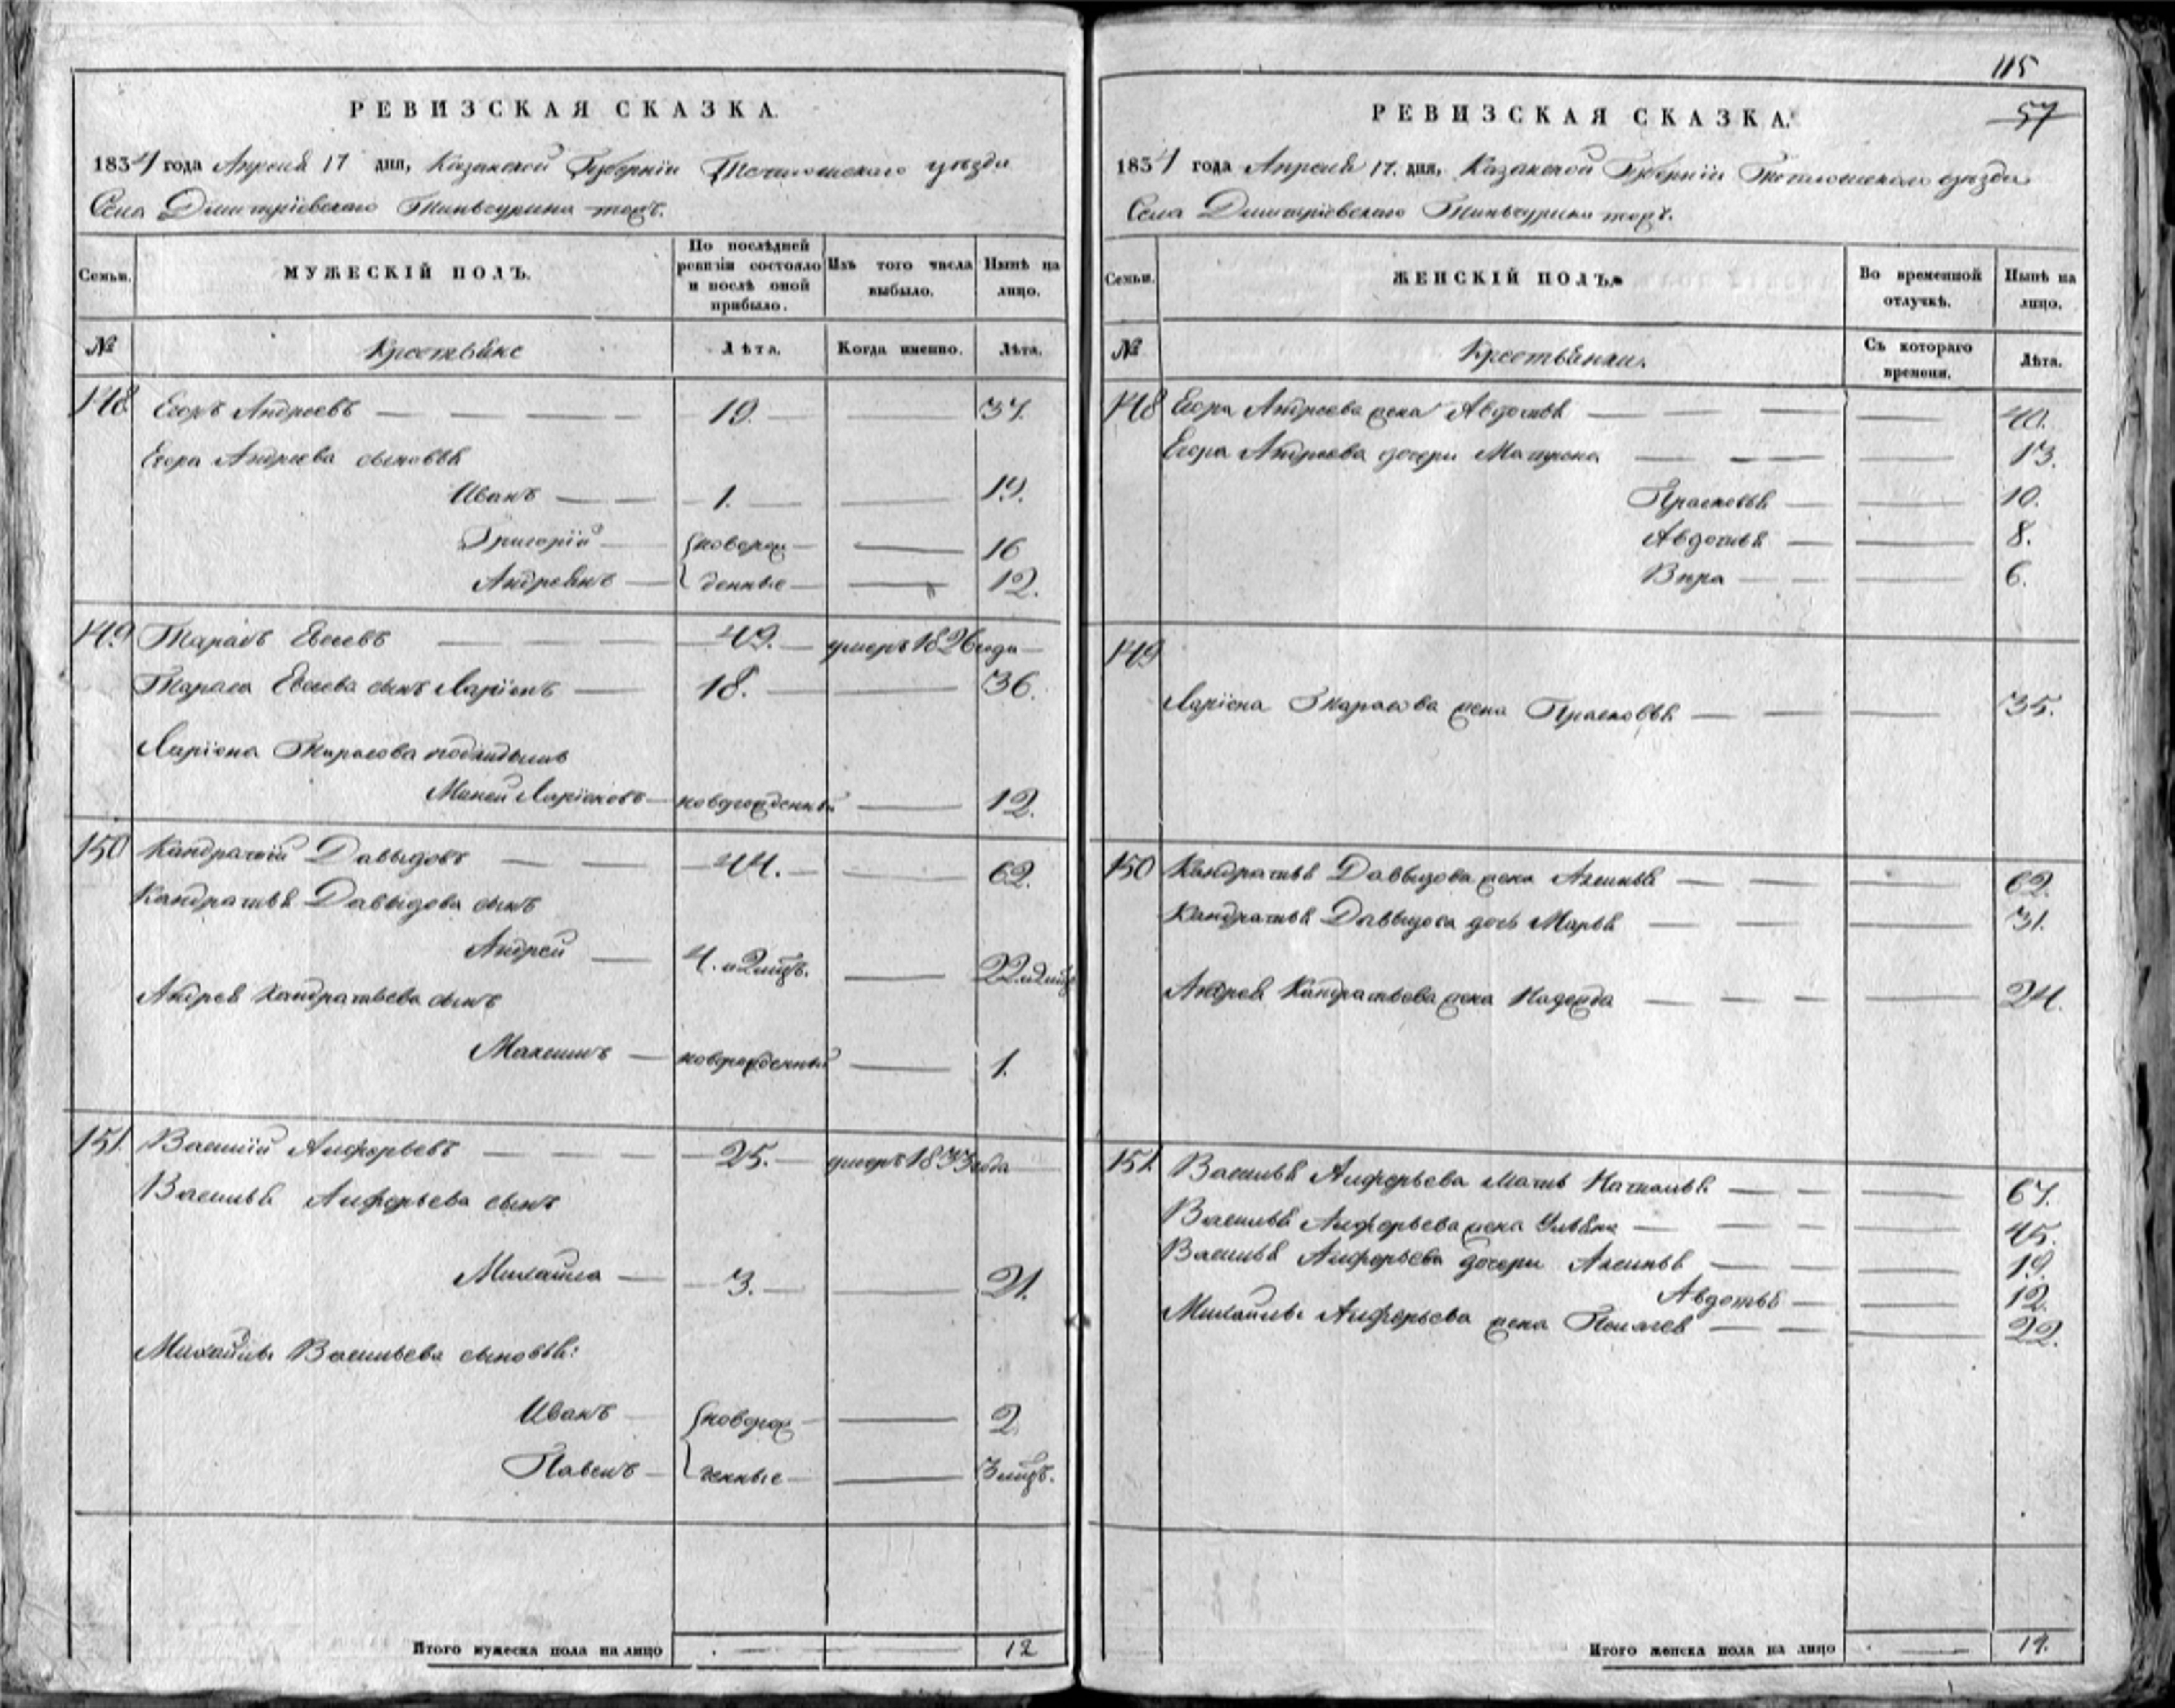 РЕВИЗСКАЯ СКАЗКА.
1834 года Апреля 17 дня, Казанской Губернии Тетюшскаго уезда
Села Дмитріевскаго Тиньчурина тожъ.
Семьи.
МУЖЕСКІЙ ПОЛЪ.
По послѣдней ревизіи состояло и послѣ оной прибыло.
Изъ того числа выбыло.
Нынѣ на лицо.
№
Крестьяне
Лѣта.
Когда именно.
Лѣта.
148. Егоръ Андреевъ 19. 37.
Егора Андреева сыновья
Иванъ 1. 19.
Григорій новорож 16
Андреянъ денные 12.
149 Тарасъ Евсеевъ 49. умеръ 1826 года
Тараса Евсеева сынъ Ларіонъ 18. 36.
Ларіона Тарасова подкидышъ
Ларіоновъ новорожденный 12.
150 Кандратій Давыдовъ 44. 62.
Кандратья Давыдова сынъ
Андрей 4. и 2 мцъ. 22 и 2 мцъ
Андрея Кандратьева сынъ
Максимъ новорожденный 1.
151. Василій Алферьевъ 25. умеръ 1833 года
Василья Алферьева сынъ
Михайла 3. 21.
Михайлы Васильева сыновья:
Иванъ новорож 2.
Павелъ денные 3 мцъ.
Итого мужеска пола на лицо 12
115
57
РЕВИЗСКАЯ СКАЗКА.
1834 года Апреля 17. дня, Казанской Губерніи Тетюшскаго уезда
Села Дмитріевскаго Тиньчурина тожъ.
Семьи.
ЖЕНСКІЙ ПОЛЪ.
Во временной отлучкѣ.
Нынѣ на лицо.
№
Крестьянки.
Съ котораго времени.
Лѣта.
148 Егора Андреева жена Авдотья 40.
Егора Андреева дочери Матрена 13.
Прасковья 10.
Авдотья 8.
Вера 6.
149
Ларіона Тарасова жена Прасковья 35.
150 Кандратья Давыдова жена Аксинья 62.
Кандратья Давыдова дочь Марья 31.
Андрея Кандратьева жена Надежда 24.
151. Василья Алферьева мать Наталья 67.
Василья Алферьева жена Ульяна 45.
Василья Алферьева дочери Аксинья 19.
Авдотья 12.
Михайлы Алферьева жена Пелагея 22.
Итого женска пола на лицо 14.